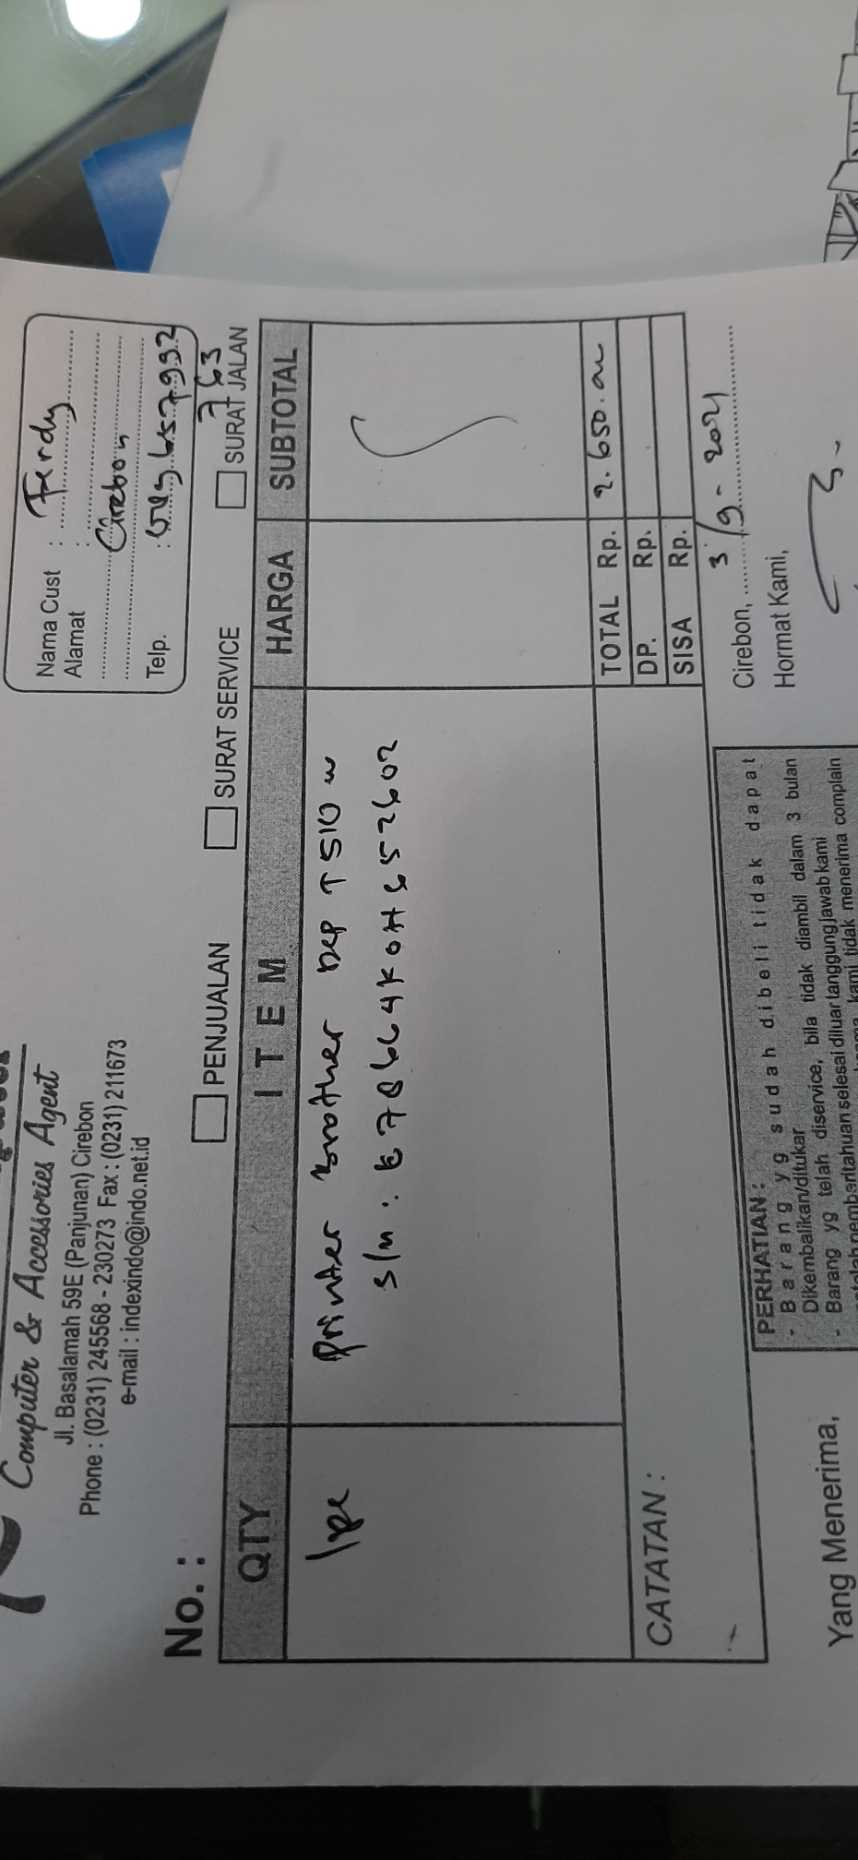 Computer & Accessories Agent
Jl. Basalamah 59E (Panjunan) Cirebon
Phone : (0231) 245568 - 230273 Fax : (0231) 211673
e-mail : indexindo@indo.net.id
Nama Cust : Ferdy
Alamat : Cirebon
Telp. :
763
No. :
PENJUALAN SURAT SERVICE SURAT JALAN
QTY ITEM HARGA SUBTOTAL
1pc Printer Brother DCP T510w
S/n : E78664K0H652602
TOTAL Rp. 2.650.
DP. Rp.
SISA Rp.
CATATAN :
Cirebon, 3/9-2021
Hormat Kami,
PERHATIAN :
- Barang yg sudah dibeli tidak dapat
Dikembalikan/ditukar
- Barang yg telah diservice, bila tidak diambil dalam 3 bulan
setelah pemberitahuan selesai diluar tanggung jawab kami
kami tidak menerima complain
Yang Menerima,